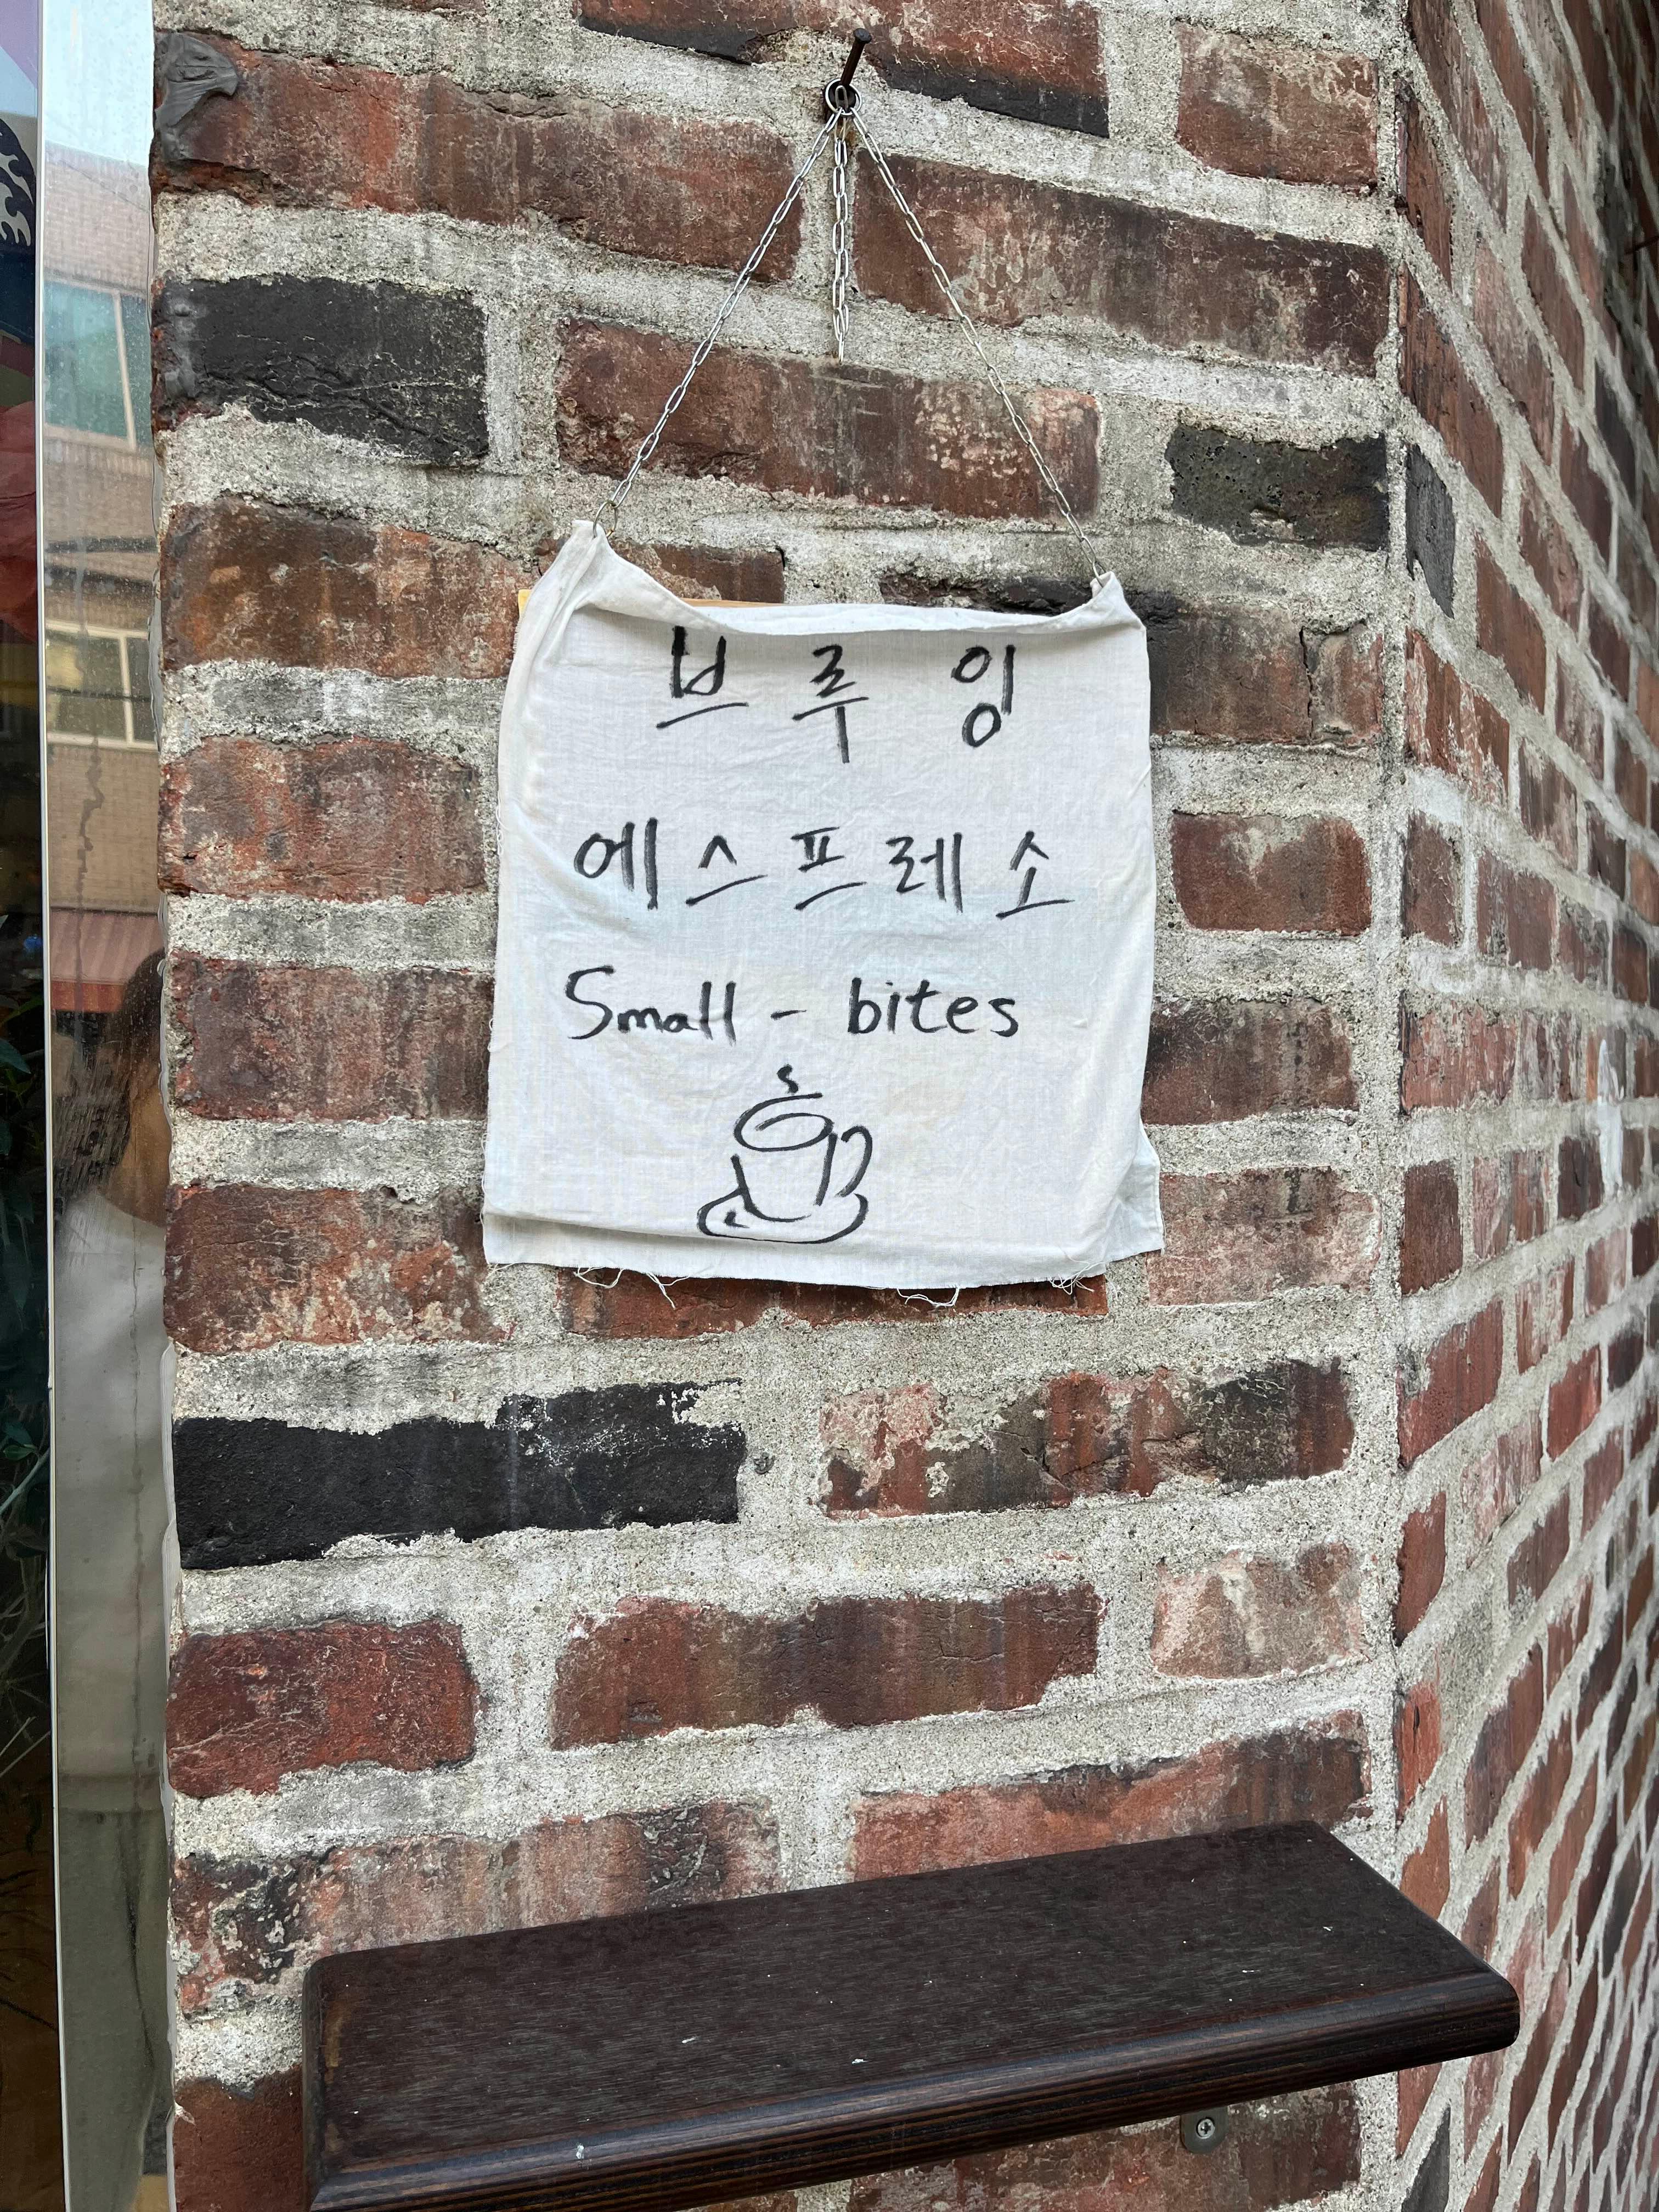 브루잉
에스프레소
Small - bites